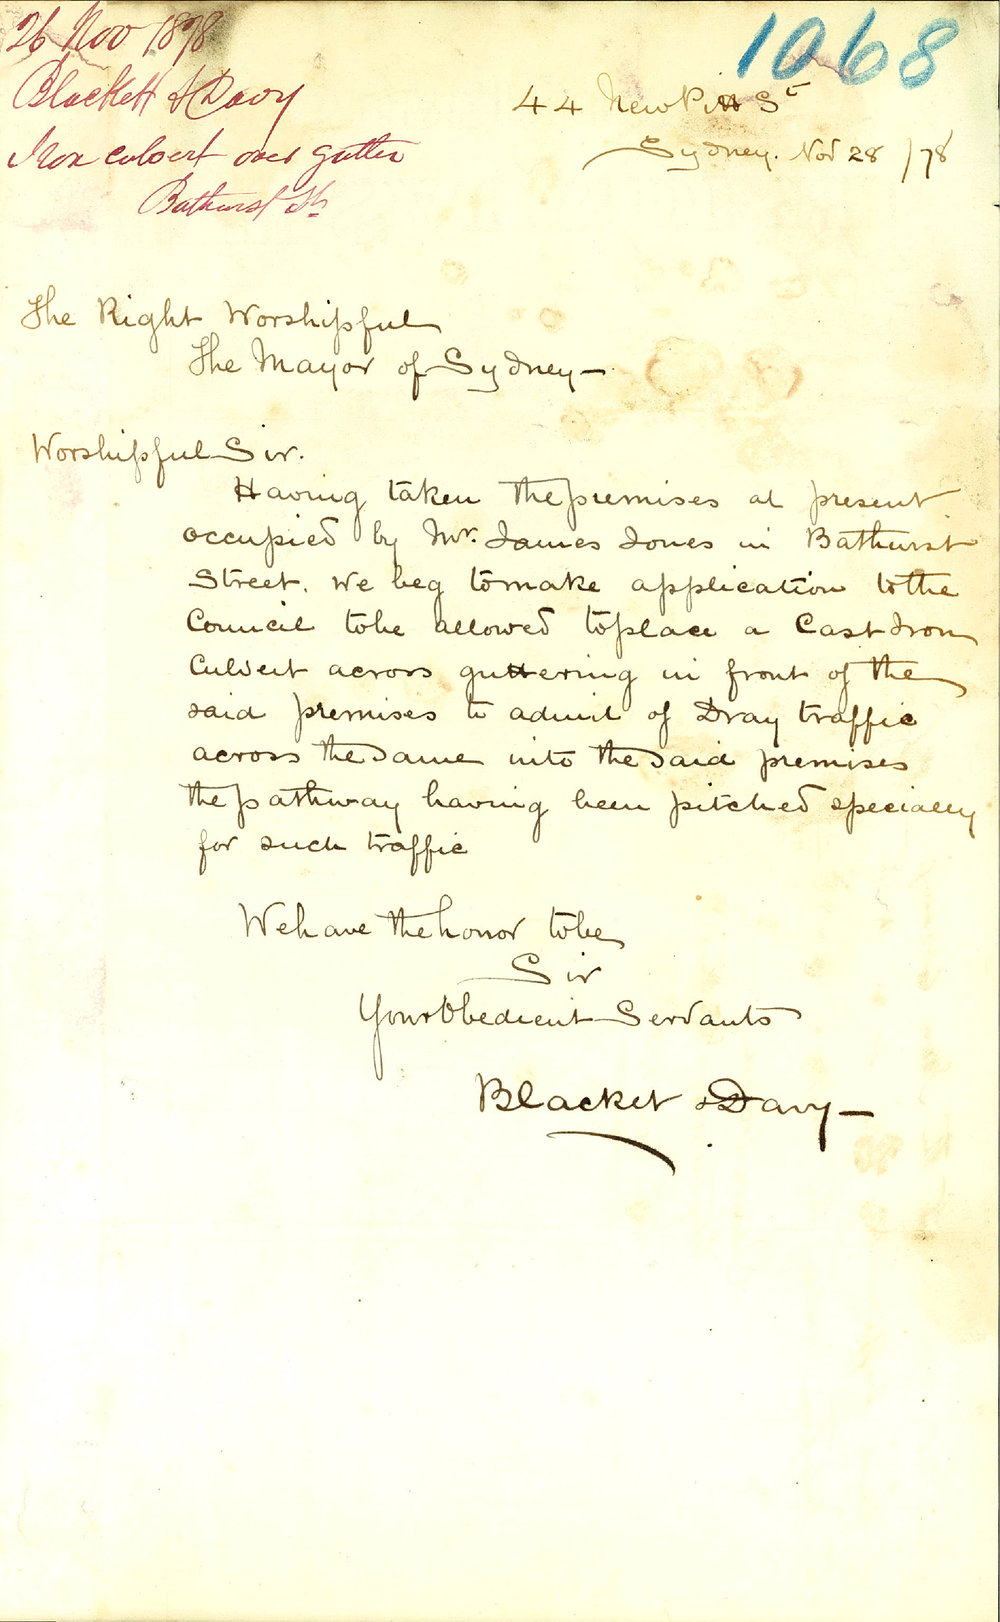 1068
26 Nov 1878
Blackett & Davy
Iron culvert over gutter
Bathurst St
44 New Pitt St
Sydney. Nov 28 /78
The Right Worshipful
The Mayor of Sydney—
Worshipful Sir.
Having taken the premises at present
occupied by Mr. James Jones in Bathurst
Street. We beg to make application to the
Council to be allowed to place a Cast Iron
Culvert across guttering in front of the
said premises to admit of Dray traffic
across the same into the said premises
the pathway having been pitched specially
for such traffic
We have the honor to be
Sir
Your Obedient Servants
Blacket & Davy—